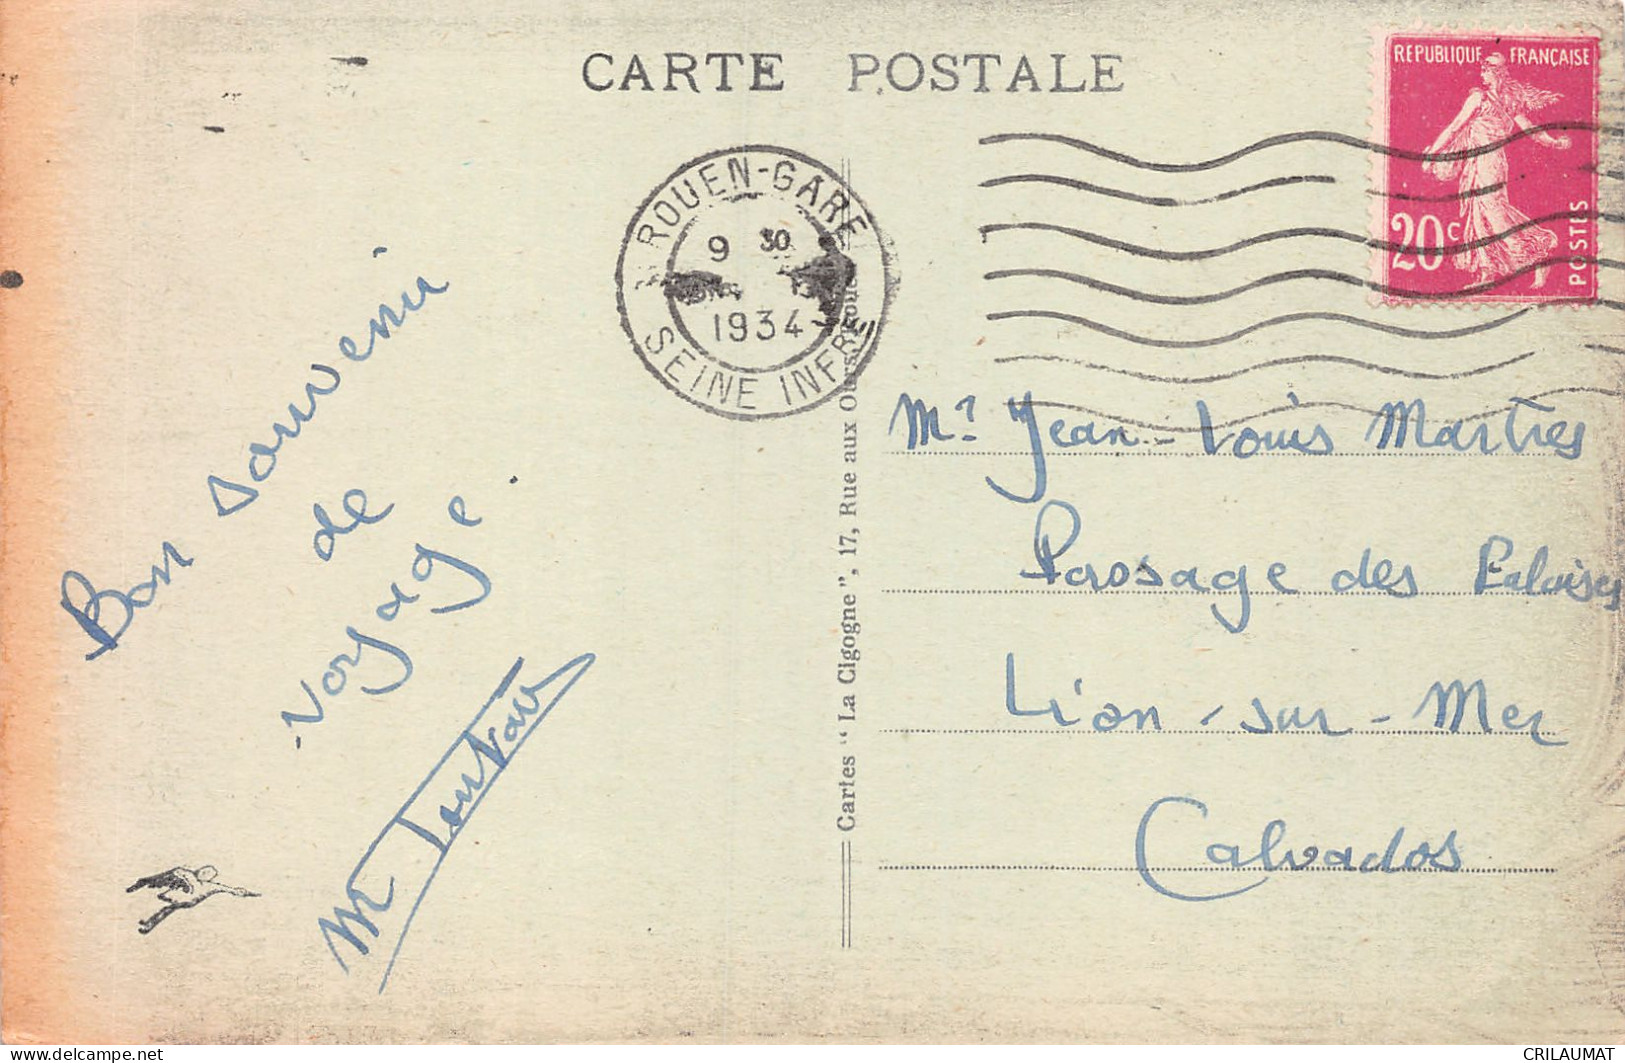 CARTE POSTALE
REPUBLIQUE FRANÇAISE
20c
POSTES
ROUEN-GARE
9 30
1934
SEINE INFRE
Bon souvenir
de
voyage.
Mr Jean-Louis Martres
Passage des
Lion-sur-Mer
Calvados
Cartes "La Cigogne", 17, Rue aux
delcampe.net
CRILAUMAT